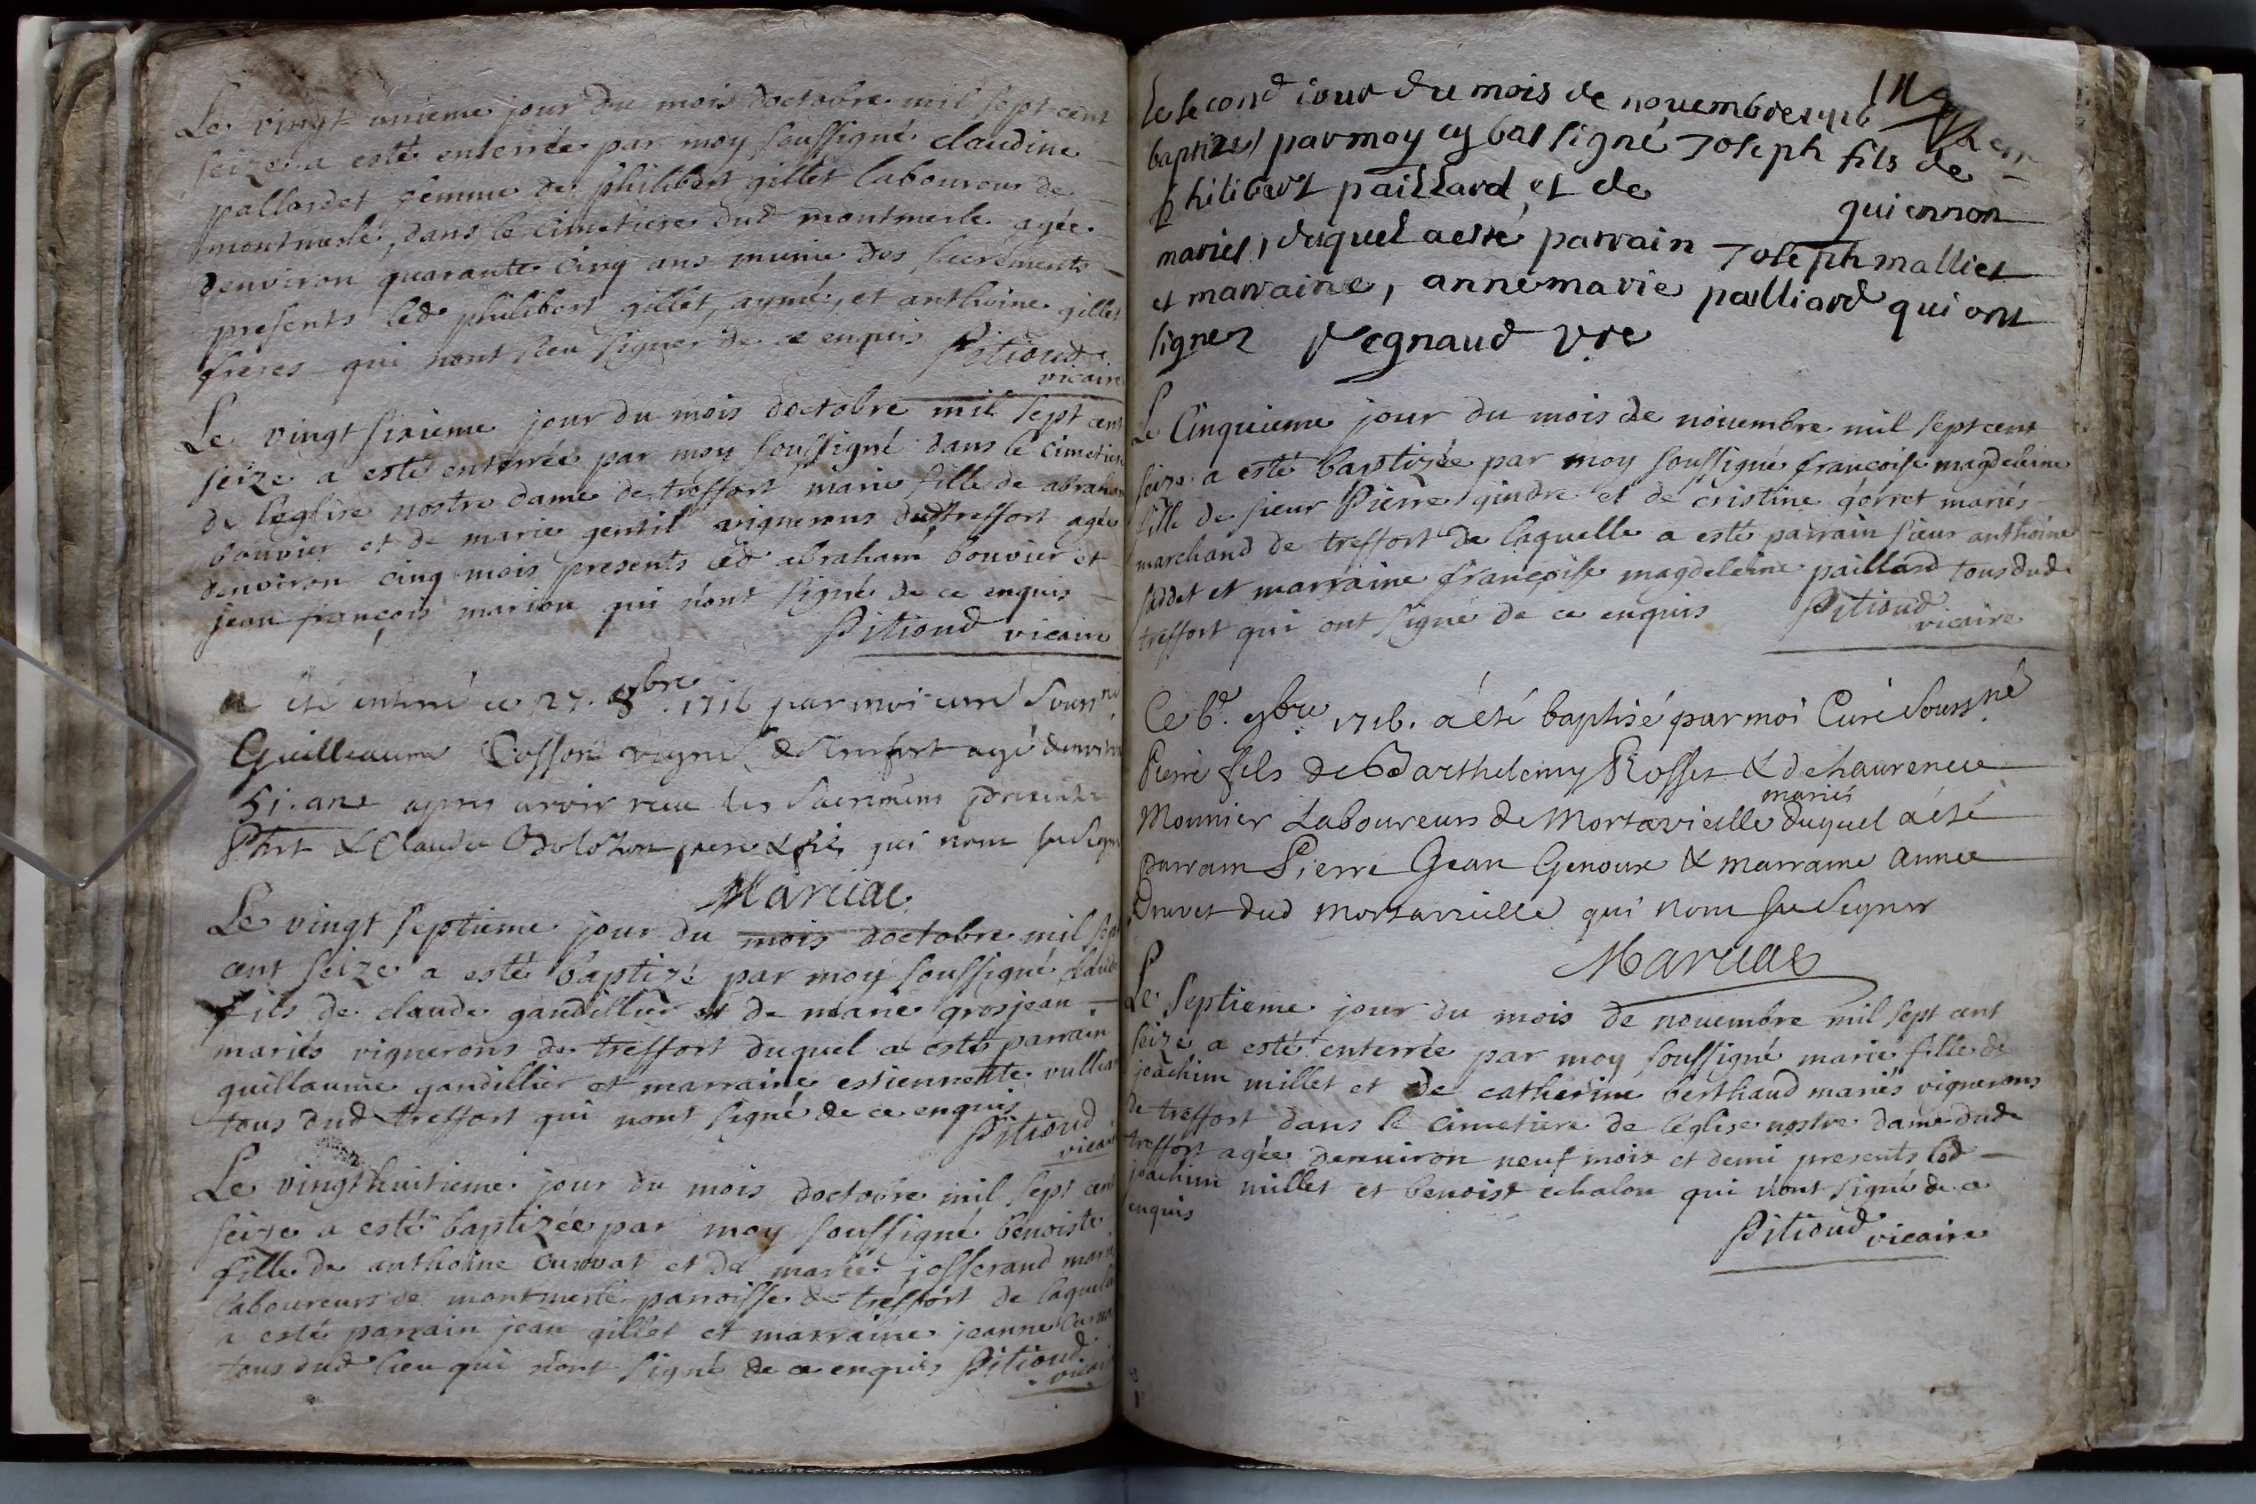 Le vingt unieme jour du mois doctobre mil sept cent
seize a esté enterrée par moy soussigné claudine
pallordet femme de philibert gillet laboureur de
montmerle, dans le cimetiere dud montmerle agée
denviron quarante cinq ans munie des sacrements
presents led philibert gillet, aymé, et anthoine gillet
freres qui nont sceu signer de ce enquis Pitioud
vicaire
Le vingt sixieme jour du mois doctobre mil sept cent
seize a esté enterrée par moy soussigné dans le cimetiere
de leglise nostre dame de treffort marie fille de abraham
bouvier et de marie gentil vignerons dud treffort agée
denviron cinq mois presents led abraham bouvier et
jean françois marion qui n'ont signé de ce enquis
Pitioud vicaire
a été enterré ce 27. 8bre. 1716 par moi curé Souss.né
Guilleaume Cosson vigne. de Treffort agé denviron
51. ans apres avoir receu les Sacremens presents
Phrt & Claude pere & fils qui nont seu Signer
Marciac
Le vingt septieme jour du mois doctobre mil sept
cent seize a esté baptizé par moy soussigné claude
fils de claude gaudillier et de marie grosjean
mariés vignerons de treffort duquel a esté parrain
guillaume gaudillier et marraine estiennette vulliat
tous dud treffort qui nont signé de ce enquis
Pitioud
vicaire
Le vingt huitieme jour du mois doctobre mil sept cent
seize a esté baptizée par moy soussigné benoiste
fille de anthoine curvat et de marie josserand mariés
laboureurs de montmerle parroisse de treffort de laquelle
a esté parrain jean gillet et marraine jeanne
tous dud lieu qui n'ont signé de ce enquis Pitioud
vicaire
le second iour du mois de nouembre 1716
baptizé par moy cy bas signé Joseph fils de
philibert paillard et de guiennon
mariés, duquel a esté parrain Joseph malliet
et marraine, anne marie palliard qui ont
signez Regnaud vre
Le Cinquieme jour du mois de novembre mil sept cent
seize a esté baptizée par moy soussigné francoise magdeleine
fille de sieur Pierre gindre et de cristine gorret mariés
marchand de treffort de laquelle a esté parrain sieur anthoine
saddet et marraine françoise magdeleine paillard tous dud
treffort qui ont signé de ce enquis Pitioud
vicaire
Ce 6e. 9bre 1716. a été baptisé par moi Curé Souss.né
Pierre fils de Barthelemy Rosset & de Laurence
mariés
Mounier Laboureurs de Mortavieille duquel a été
parrain Pierre Jean Genoux & marraine Anne
Druvet dud Mortavieille qui nont seu Signer
Marciac
Le septieme jour du mois de novembre mil sept cent
seize a esté enterrée par moy soussigné marie fille de
joachim millet et de catherine berthaud mariés vignerons
de treffort dans le cimetiere de leglise nostre dame dud
treffort agée denviron neuf mois et demi presents led
joachim millet et benoist echalou qui n'ont signé de ce
enquis
Pitioud vicaire